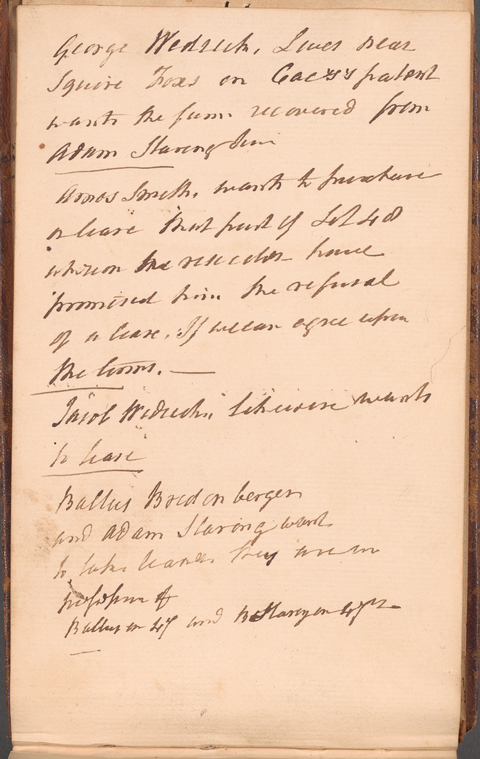 George Wedrick, Lives near
Squire Foxs on patent
wants the farm recovered from
Adam Staring Jun
Amos Smith, wants to purchase
or lease that part of Lot 48
whereon he resides have
promised him the refusal
of a lease. If we can agree upon
the terms. —
Jacob Wedrick, likewise wants
to lease
Baltus Bredenberger
and Adam Staring want
to take leases they are in
possession of
Baltus on 47 and Staring on